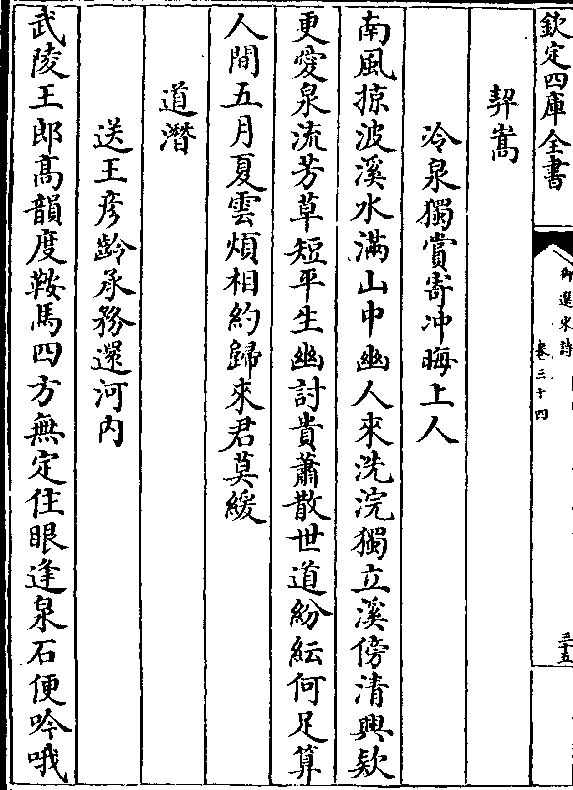 欽定四庫全書
御選宋詩
卷三十四
三十五
契嵩
冷泉獨賞寄冲晦上人
南風掠波溪水滿山中幽人來洗浣獨立溪傍清興欵
更愛泉流芳草短平生幽討貴蕭散世道紛紜何足算
人間五月夏雲煩相約歸來君莫緩
道潛
送王彦齡承務還河内
武陵王郎髙韻度鞍馬四方無定住眼逢泉石便吟哦